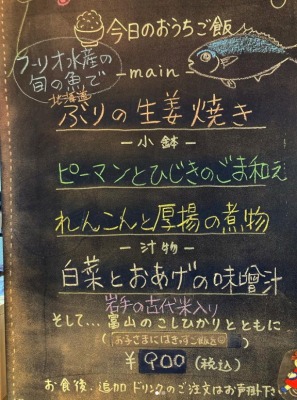 今日のおうちご飯
フーリオ水産の
旬の魚で
-main-
北海道
ぶりの生姜焼き
-小鉢-
ピーマンとひじきのごま和え
れんこんと厚揚の煮物
-汁物-
白菜とおあげの味噌汁
岩手の古代米入り
そして…富山のこしひかりとともに
¥900(税込)
お食後、追加ドリンクのご注文はお声掛け下さい